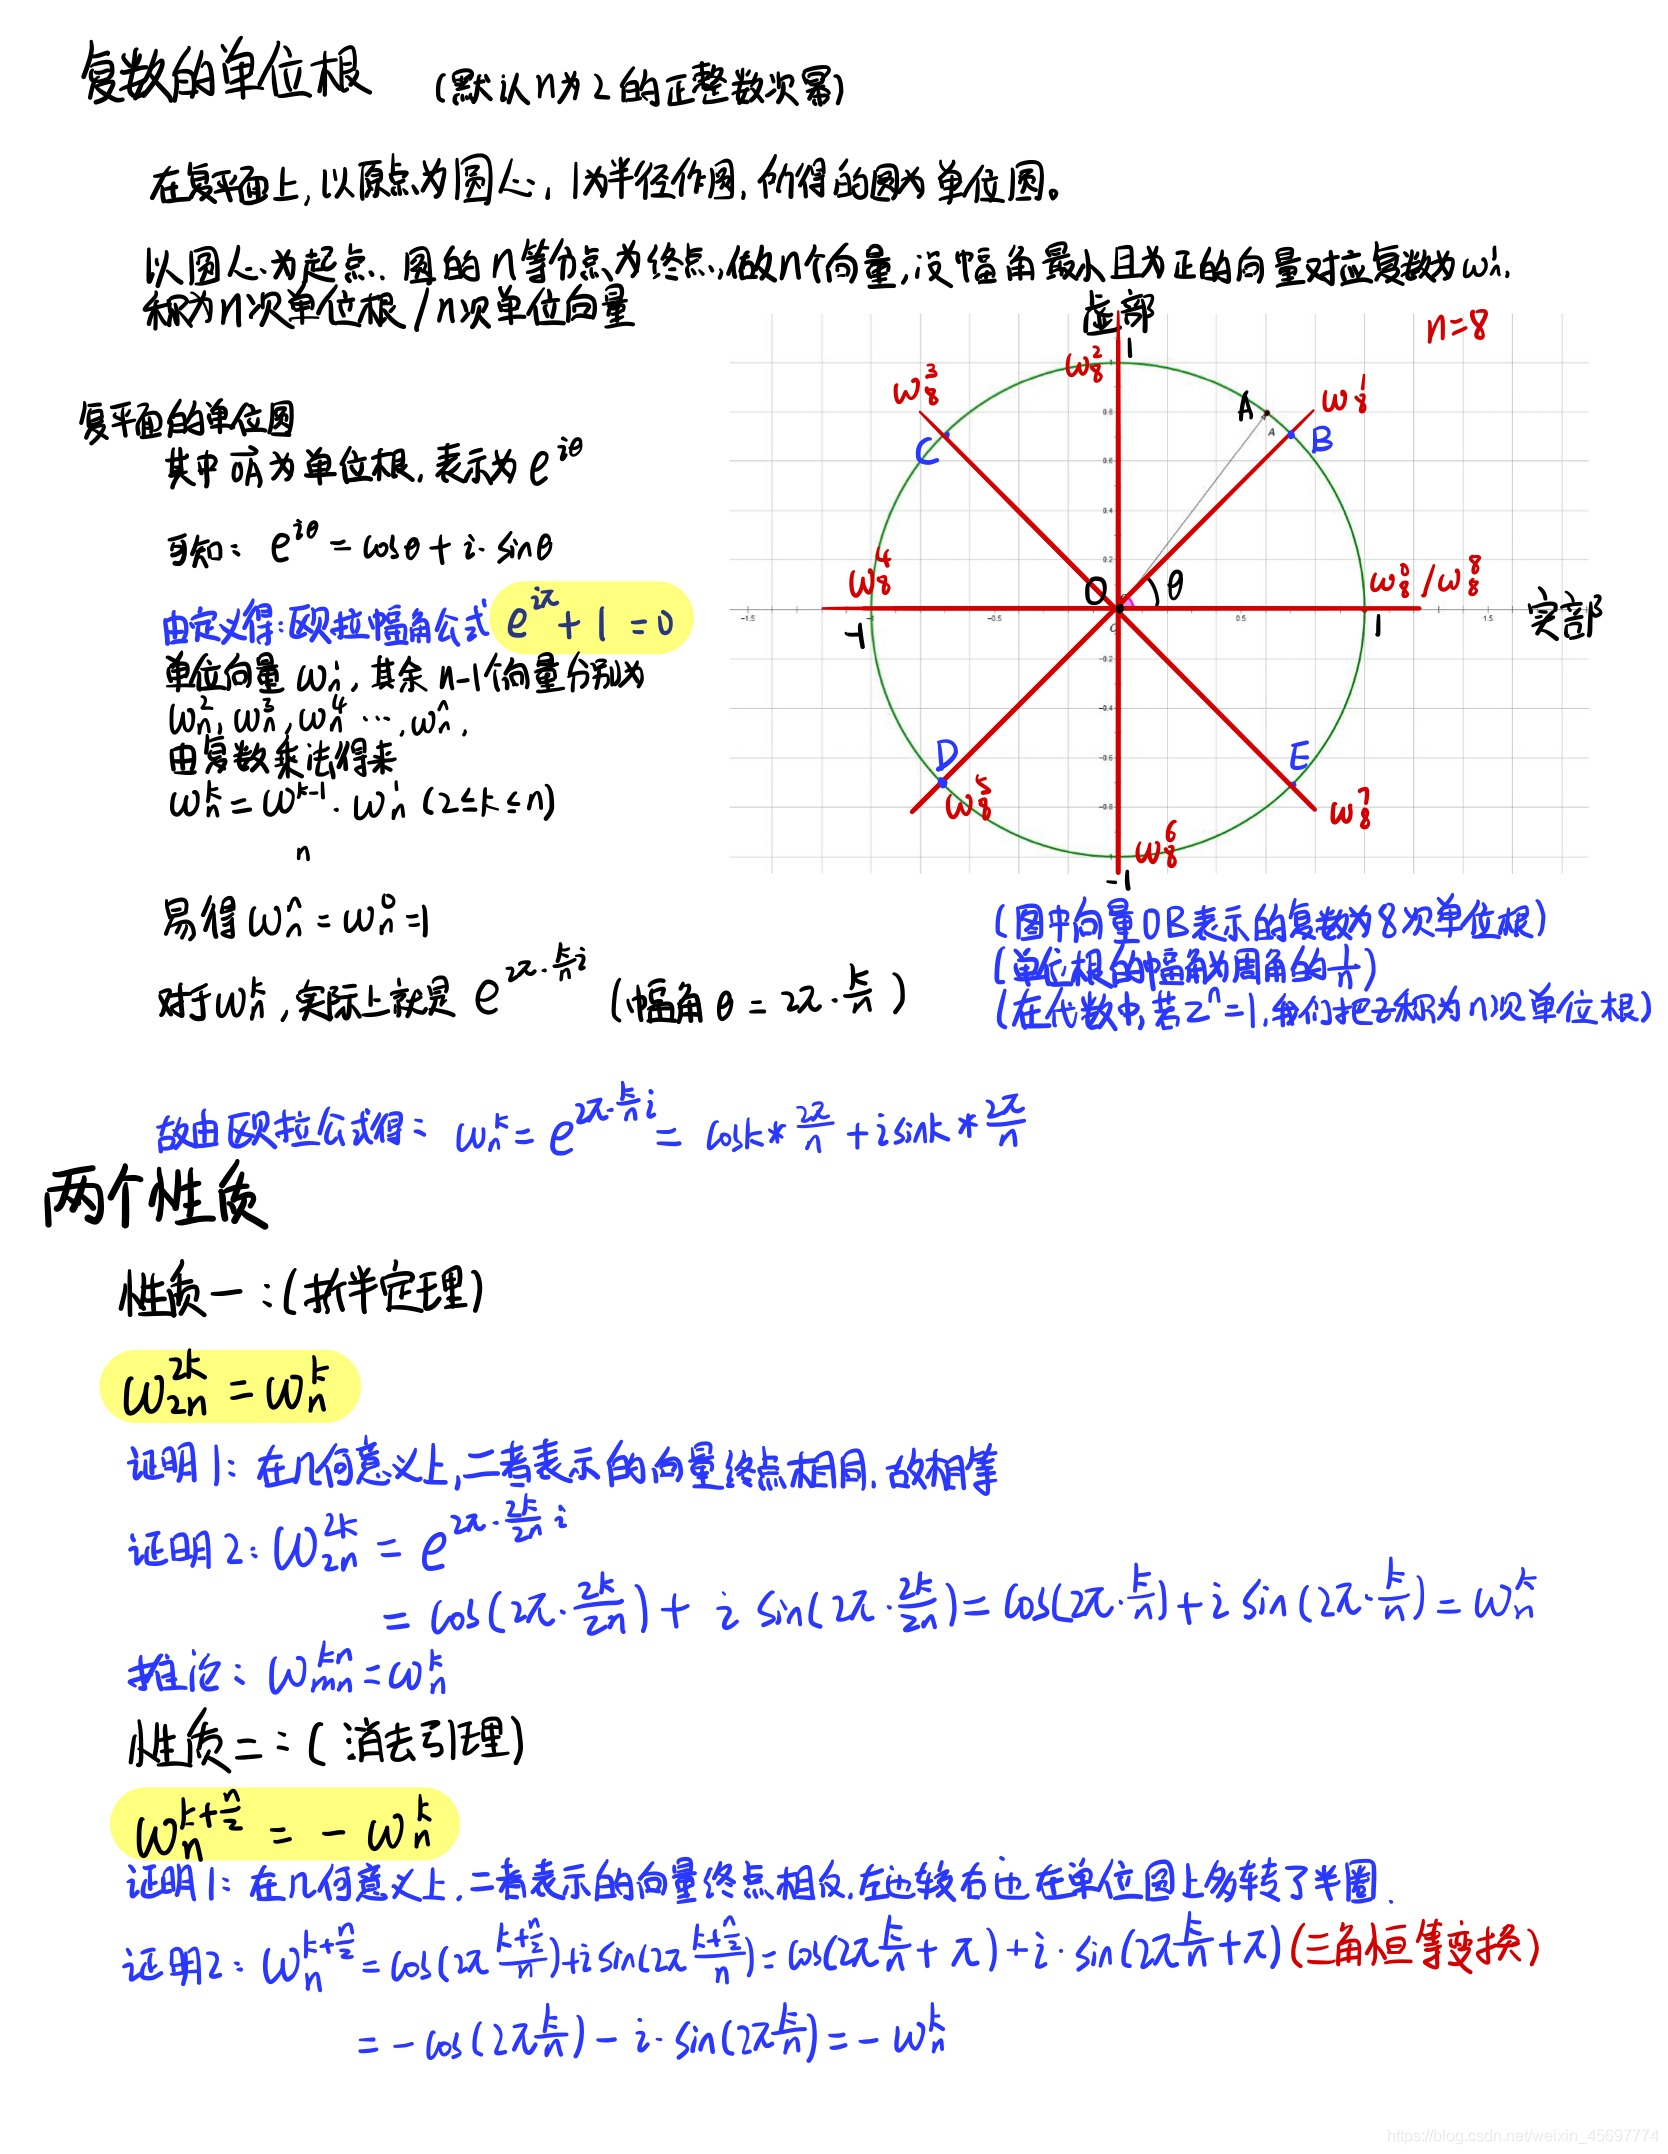 复数的单位根 (默认n为2的正整数次幂)
在复平面上,以原点为圆心,1为半径作圆,所得的圆为单位圆。
以圆心为起点,圆的n等分点为终点,做n个向量,设幅角最小且为正的向量对应复数为ω_n^1,
称为n次单位根/n次单位向量
虚部
n=8
1
ω_8^2
ω_8^3
A
ω_8^1
C
B
A
0.8
0.6
0.4
0.2
ω_8^4
O
θ
ω_8^0/ω_8^8
-1.5
-1
-0.5
0.5
1
1.5
实部
-0.2
-0.4
-0.6
-0.8
D
E
ω_8^5
ω_8^7
ω_8^6
-1
复平面的单位圆
其中OA为单位根,表示为e^{iθ}
可知: e^{iθ} = cosθ + i·sinθ
由定义得:欧拉幅角公式 e^{iπ} + 1 = 0
单位向量 ω_n^1, 其余 n-1个向量分别为
ω_n^2, ω_n^3, ω_n^4 ···, ω_n^n,
由复数乘法得来
ω_n^k = ω^{k-1} · ω_n^1 (2≤k≤n)
n
易得 ω_n^n = ω_n^0 = 1
对于ω_n^k, 实际上就是 e^{2π·\frac{k}{n}i} (幅角θ = 2π·\frac{k}{n})
(图中向量OB表示的复数为8次单位根)
(单位根的幅角为周角的\frac{1}{n})
(在代数中,若z^n=1,我们把z称为n次单位根)
故由欧拉公式得: ω_n^k = e^{2π·\frac{k}{n}i} = cosk*\frac{2π}{n} + isink*\frac{2π}{n}
两个性质
性质一:(折半定理)
ω_{2n}^{2k} = ω_n^k
证明1: 在几何意义上,二者表示的向量终点相同,故相等
证明2: ω_{2n}^{2k} = e^{2π·\frac{2k}{2n}i}
= cos(2π·\frac{2k}{2n}) + i sin(2π·\frac{2k}{2n}) = cos(2π·\frac{k}{n}) + i sin(2π·\frac{k}{n}) = ω_n^k
推论: ω_{mn}^{kn} = ω_n^k
性质二:(消去引理)
ω_n^{k+\frac{n}{2}} = -ω_n^k
证明1: 在几何意义上,二者表示的向量终点相反,左边较右边在单位圆上多转了半圈.
证明2: ω_n^{k+\frac{n}{2}} = cos(2π\frac{k+\frac{n}{2}}{n}) + i sin(2π\frac{k+\frac{n}{2}}{n}) = cos(2π\frac{k}{n} + π) + i·sin(2π\frac{k}{n} + π) (三角恒等变换)
= -cos(2π\frac{k}{n}) - i·sin(2π\frac{k}{n}) = -ω_n^k
https://blog.csdn.net/weixin_45697774